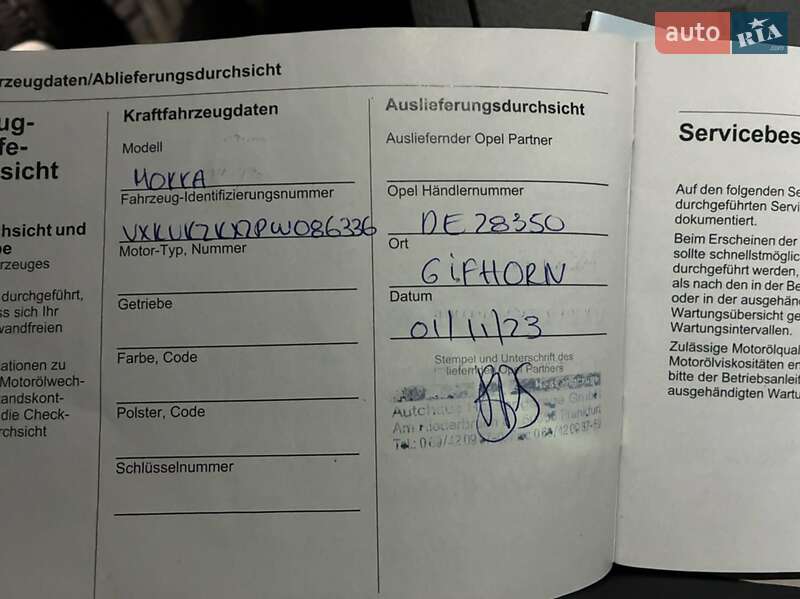 auto RIA .com
rzeugdaten/Ablieferungsdurchsicht
ug-
fe-
sicht
hsicht und
be
rzeuges
durchgeführt,
ss sich Ihr
wandfreien
ationen zu
Motorölwech-
tandskont-
die Check-
rchsicht
Kraftfahrzeugdaten
Modell
MOKKA
Fahrzeug-Identifizierungsnummer
Motor-Typ, Nummer
Getriebe
Farbe, Code
Polster, Code
Schlüsselnummer
Auslieferungsdurchsicht
Ausliefernder Opel Partner
Opel Händlernummer
DE 28350
Ort
GiFHORN
Datum
01/11/23
Stempel und Unterschrift des
Partners
Autohaus
Servicebes
Auf den folgenden Se
durchgeführten Servi
dokumentiert.
Beim Erscheinen der
sollte schnellstmöglic
durchgeführt werden,
als nach den in der Be
oder in der ausgehänd
Wartungsübersicht ge
Wartungsintervallen.
Zulässige Motorölqual
Motorölviskositäten en
bitte der Betriebsanleit
ausgehändigten Wartu